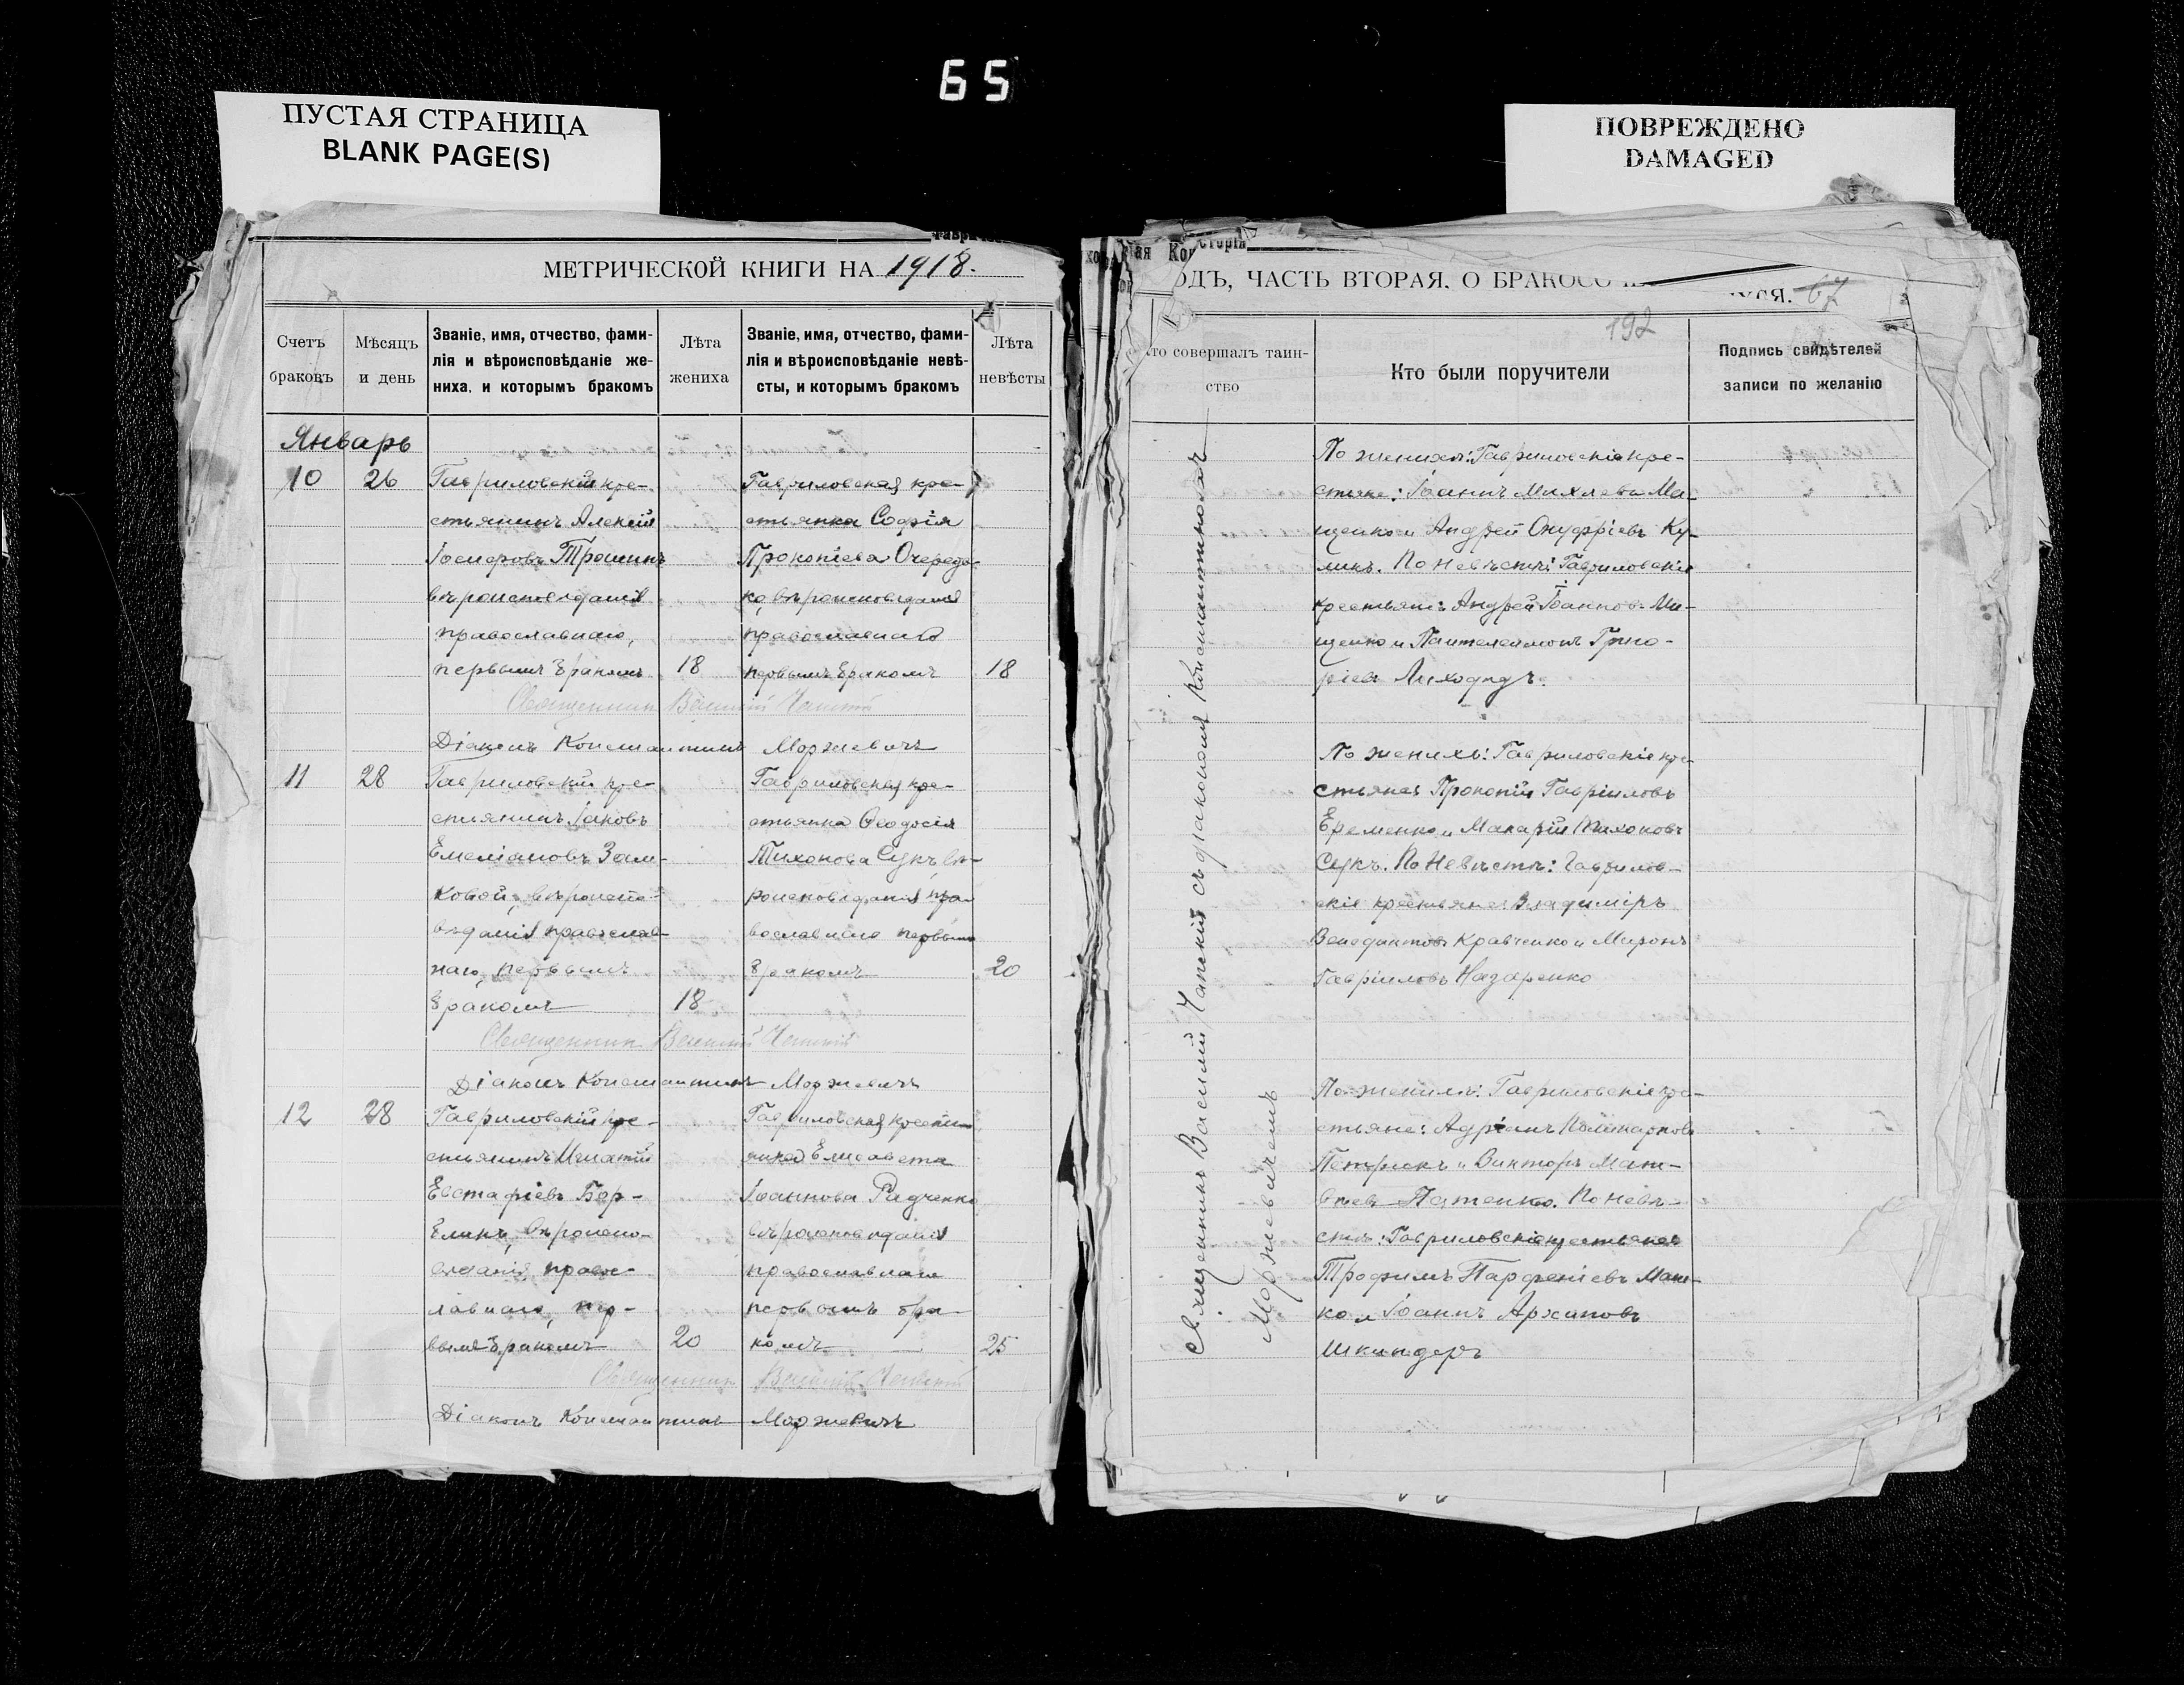 65
ПУСТАЯ СТРАНИЦА
BLANK PAGE(S)
ПОВРЕЖДЕНО
DAMAGED
МЕТРИЧЕСКОЙ КНИГИ НА 1918.
Счетъ браковъ
Мѣсяцъ и день
Званіе, имя, отчество, фами-
лія и вѣроисповѣданіе же-
ниха, и которымъ бракомъ
Лѣта жениха
Званіе, имя, отчество, фами-
лія и вѣроисповѣданіе невѣ-
сты, и которымъ бракомъ
Лѣта невѣсты
Январь
10
26
Гавриловскій кре-
стьянинъ Алексій
Іосифовъ Трошинъ
вѣроисповѣданія
православнаго,
первымъ бракомъ
18
Гавриловская кре-
стьянка Софія
Прокопіева Очередь-
ко, вѣроисповѣданія
православнаго
первымъ бракомъ
18
Священникъ Василій
Діаконъ Константинъ Моржевичъ
11
28
Гавриловскій кре-
стьянинъ Іаковъ
Емеліановъ Зам-
ковой, вѣроиспо-
вѣданія православ-
наго, первымъ
бракомъ
18
Гавриловская кре-
стьянка Ѳеодосія
Тихонова Сукъ вѣ-
роисповѣданія пра-
вославнаго первымъ
бракомъ
20
Священникъ Василій
Діаконъ Константинъ Моржевичъ
12
28
Гавриловскій кре-
стьянинъ Игнатій
Евстафіевъ Бор-
бликъ, вѣроиспо-
вѣданія правос-
лавнаго, пер-
вымъ бракомъ
20
Гавриловская крестьян-
ка Елисавета
Іоаннова Радченко
вѣроисповѣданія
православнаго
первымъ бра-
комъ
25
Священникъ Василій
Діаконъ Константинъ Моржевичъ
ОДЪ, ЧАСТЬ ВТОРАЯ, О БРАКОСО
67
192
то совершалъ таин-
ство
Кто были поручители
Подпись свидѣтелей
записи по желанію
Священникъ Василій съ діакономъ Константиномъ
Моржевичемъ
По женихѣ: Гавриловскіе кре-
стьяне: Іоаннъ Михаевъ Ма-
щенко и Андрей Онуфріевъ Ку-
ликъ. По невѣстѣ: Гавриловскіе
крестьяне: Андрей Іоанновъ Ми-
щенко и Пантелеимонъ Григо-
ріевъ Лиходѣдъ.
По женихѣ: Гавриловскіе кре-
стьяне: Прокопій Гавріиловъ
Еременко и Макарій Тихоновъ
Сукъ. По невѣстѣ: Гаврилов-
скіе крестьяне: Владиміръ
Венедиктовъ Кравченко и Миронъ
Гавріиловъ Назаренко
По женихѣ: Гавриловскіе кре-
стьяне: Адріанъ Поликарповъ
Петрикъ и Викторъ Мат-
вѣевъ Патенко. По невѣ-
стѣ: Гавриловскіе крестьяне
Трофимъ Парфеніевъ Мат-
ко и Іоаннъ Архиповъ
Шкиндеръ